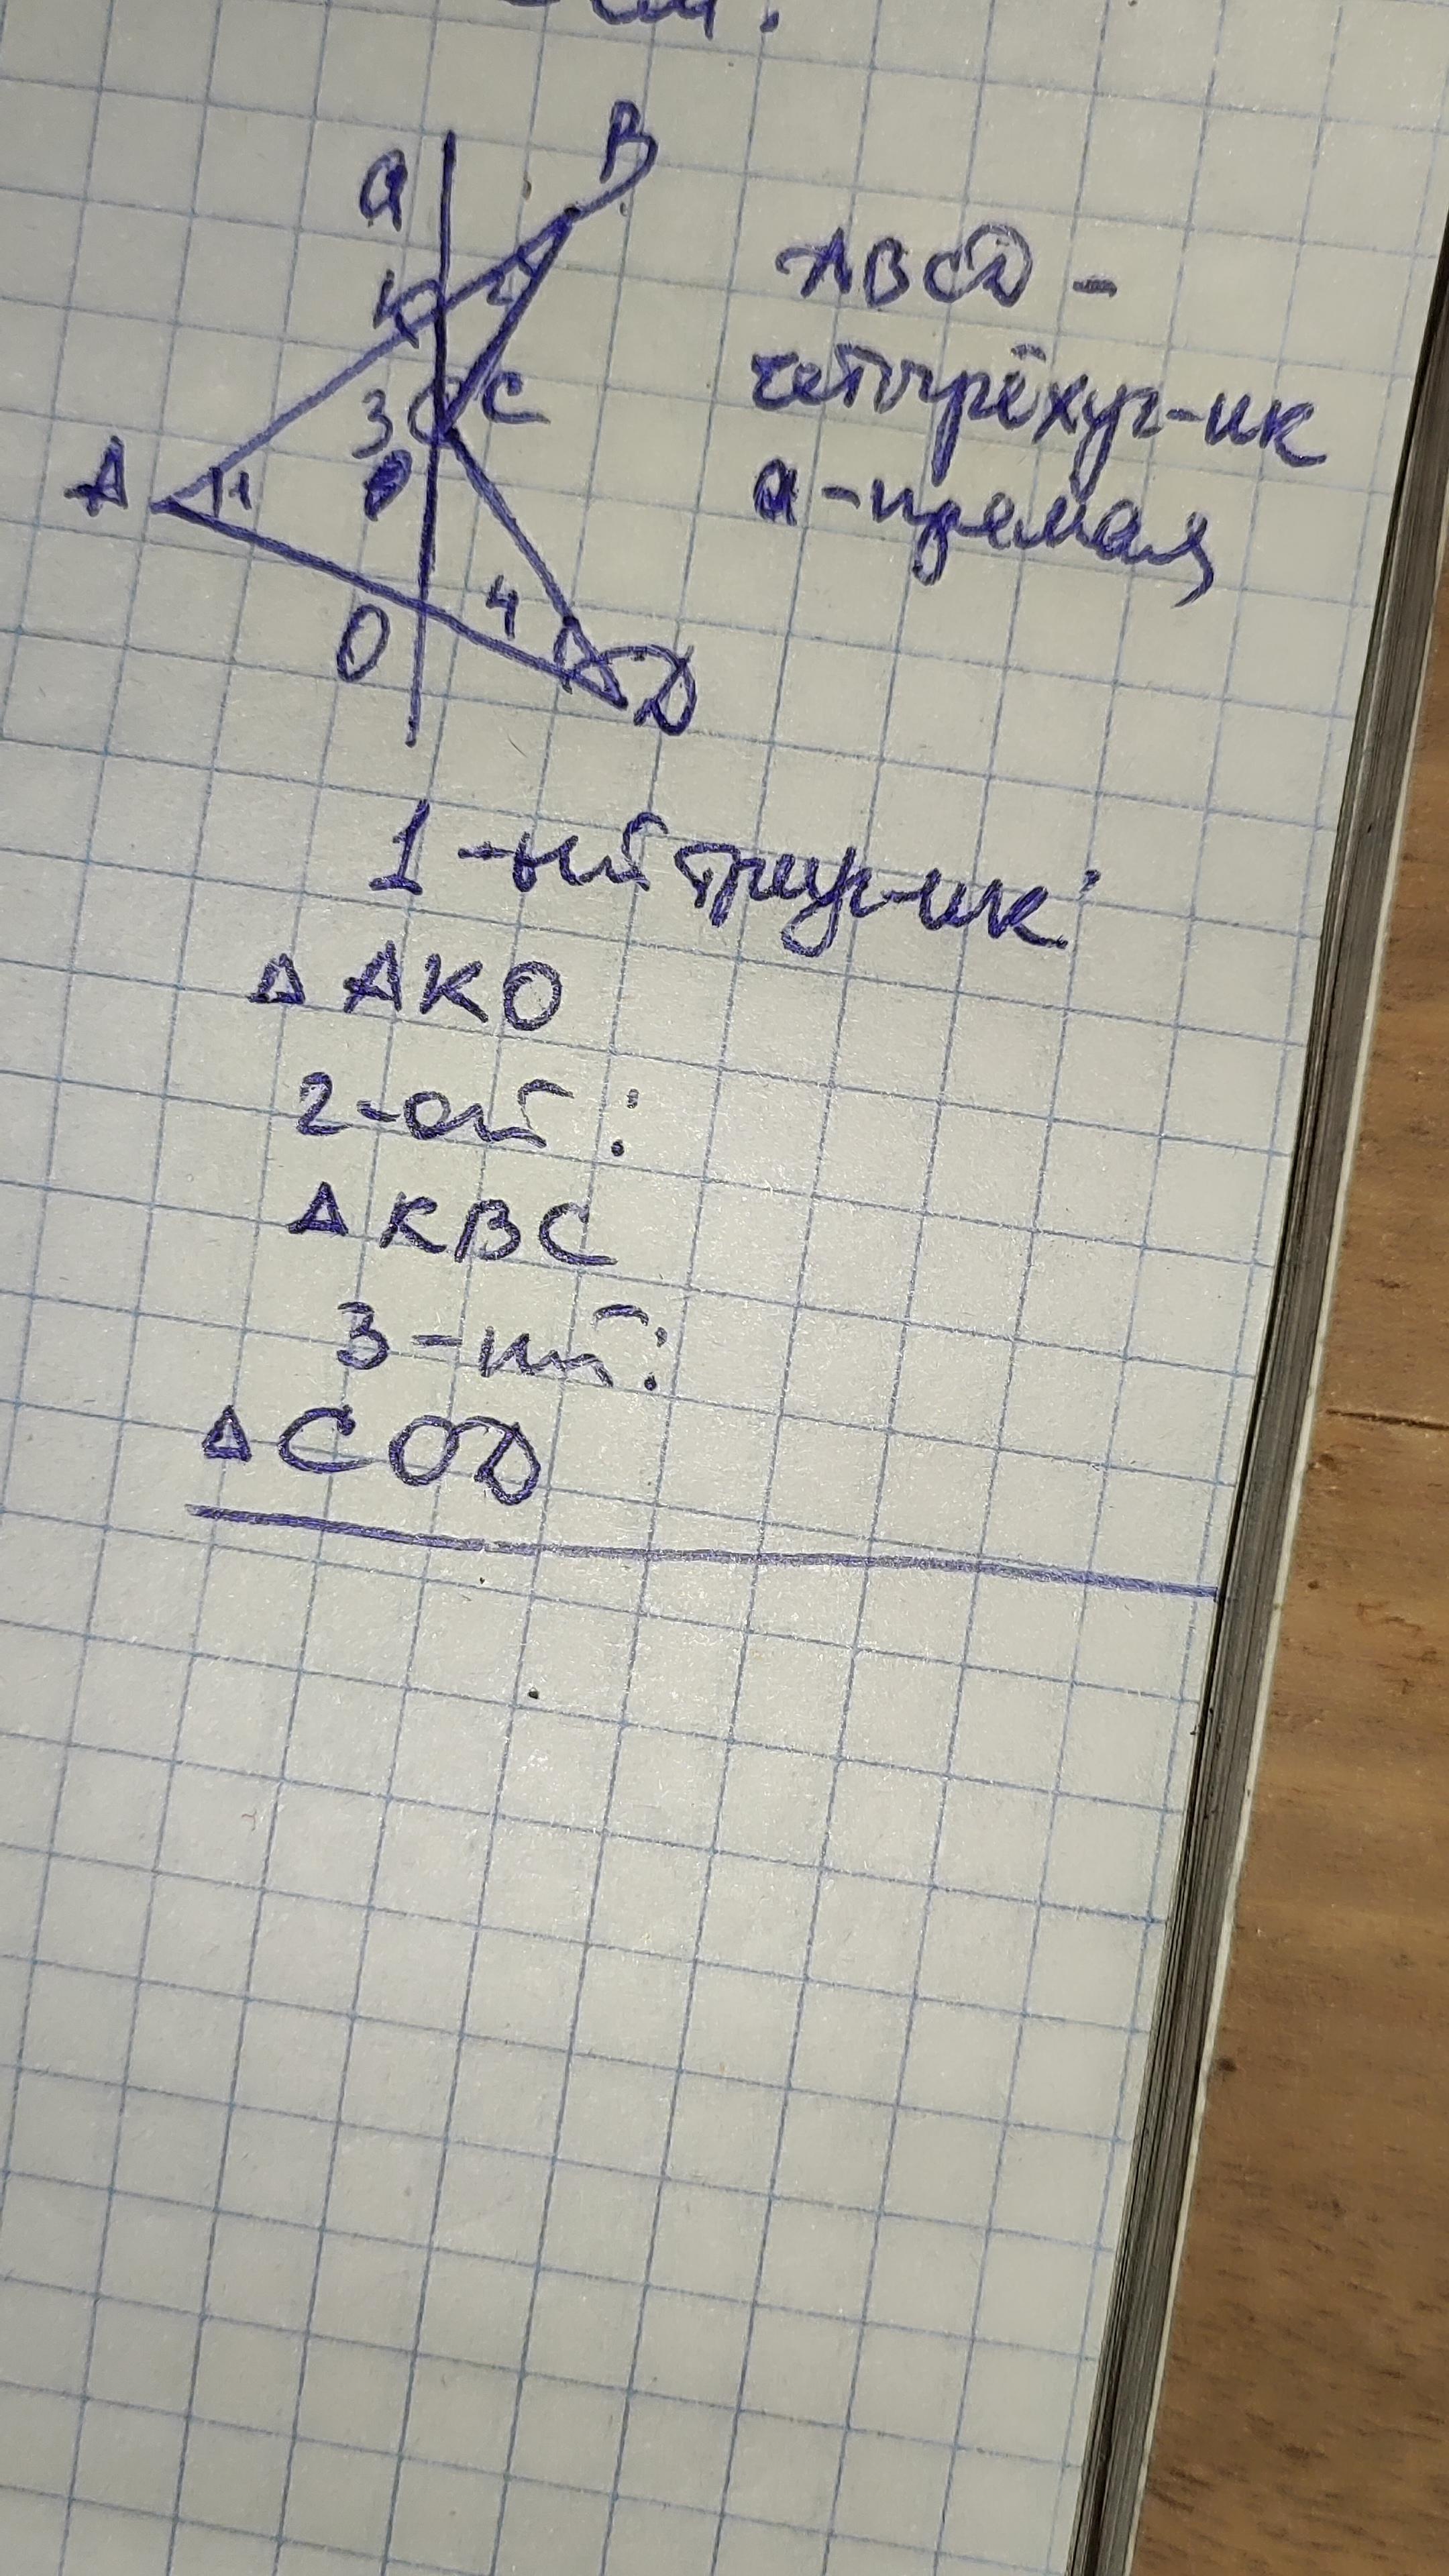 a
B
K
2
3
C
A
1
4
O
D
ABCD -
четырёхуг-ик
a - прямая
1 -ый триуг-ик:
Δ AKO
2-ой :
Δ KBC
3-ий:
Δ COD